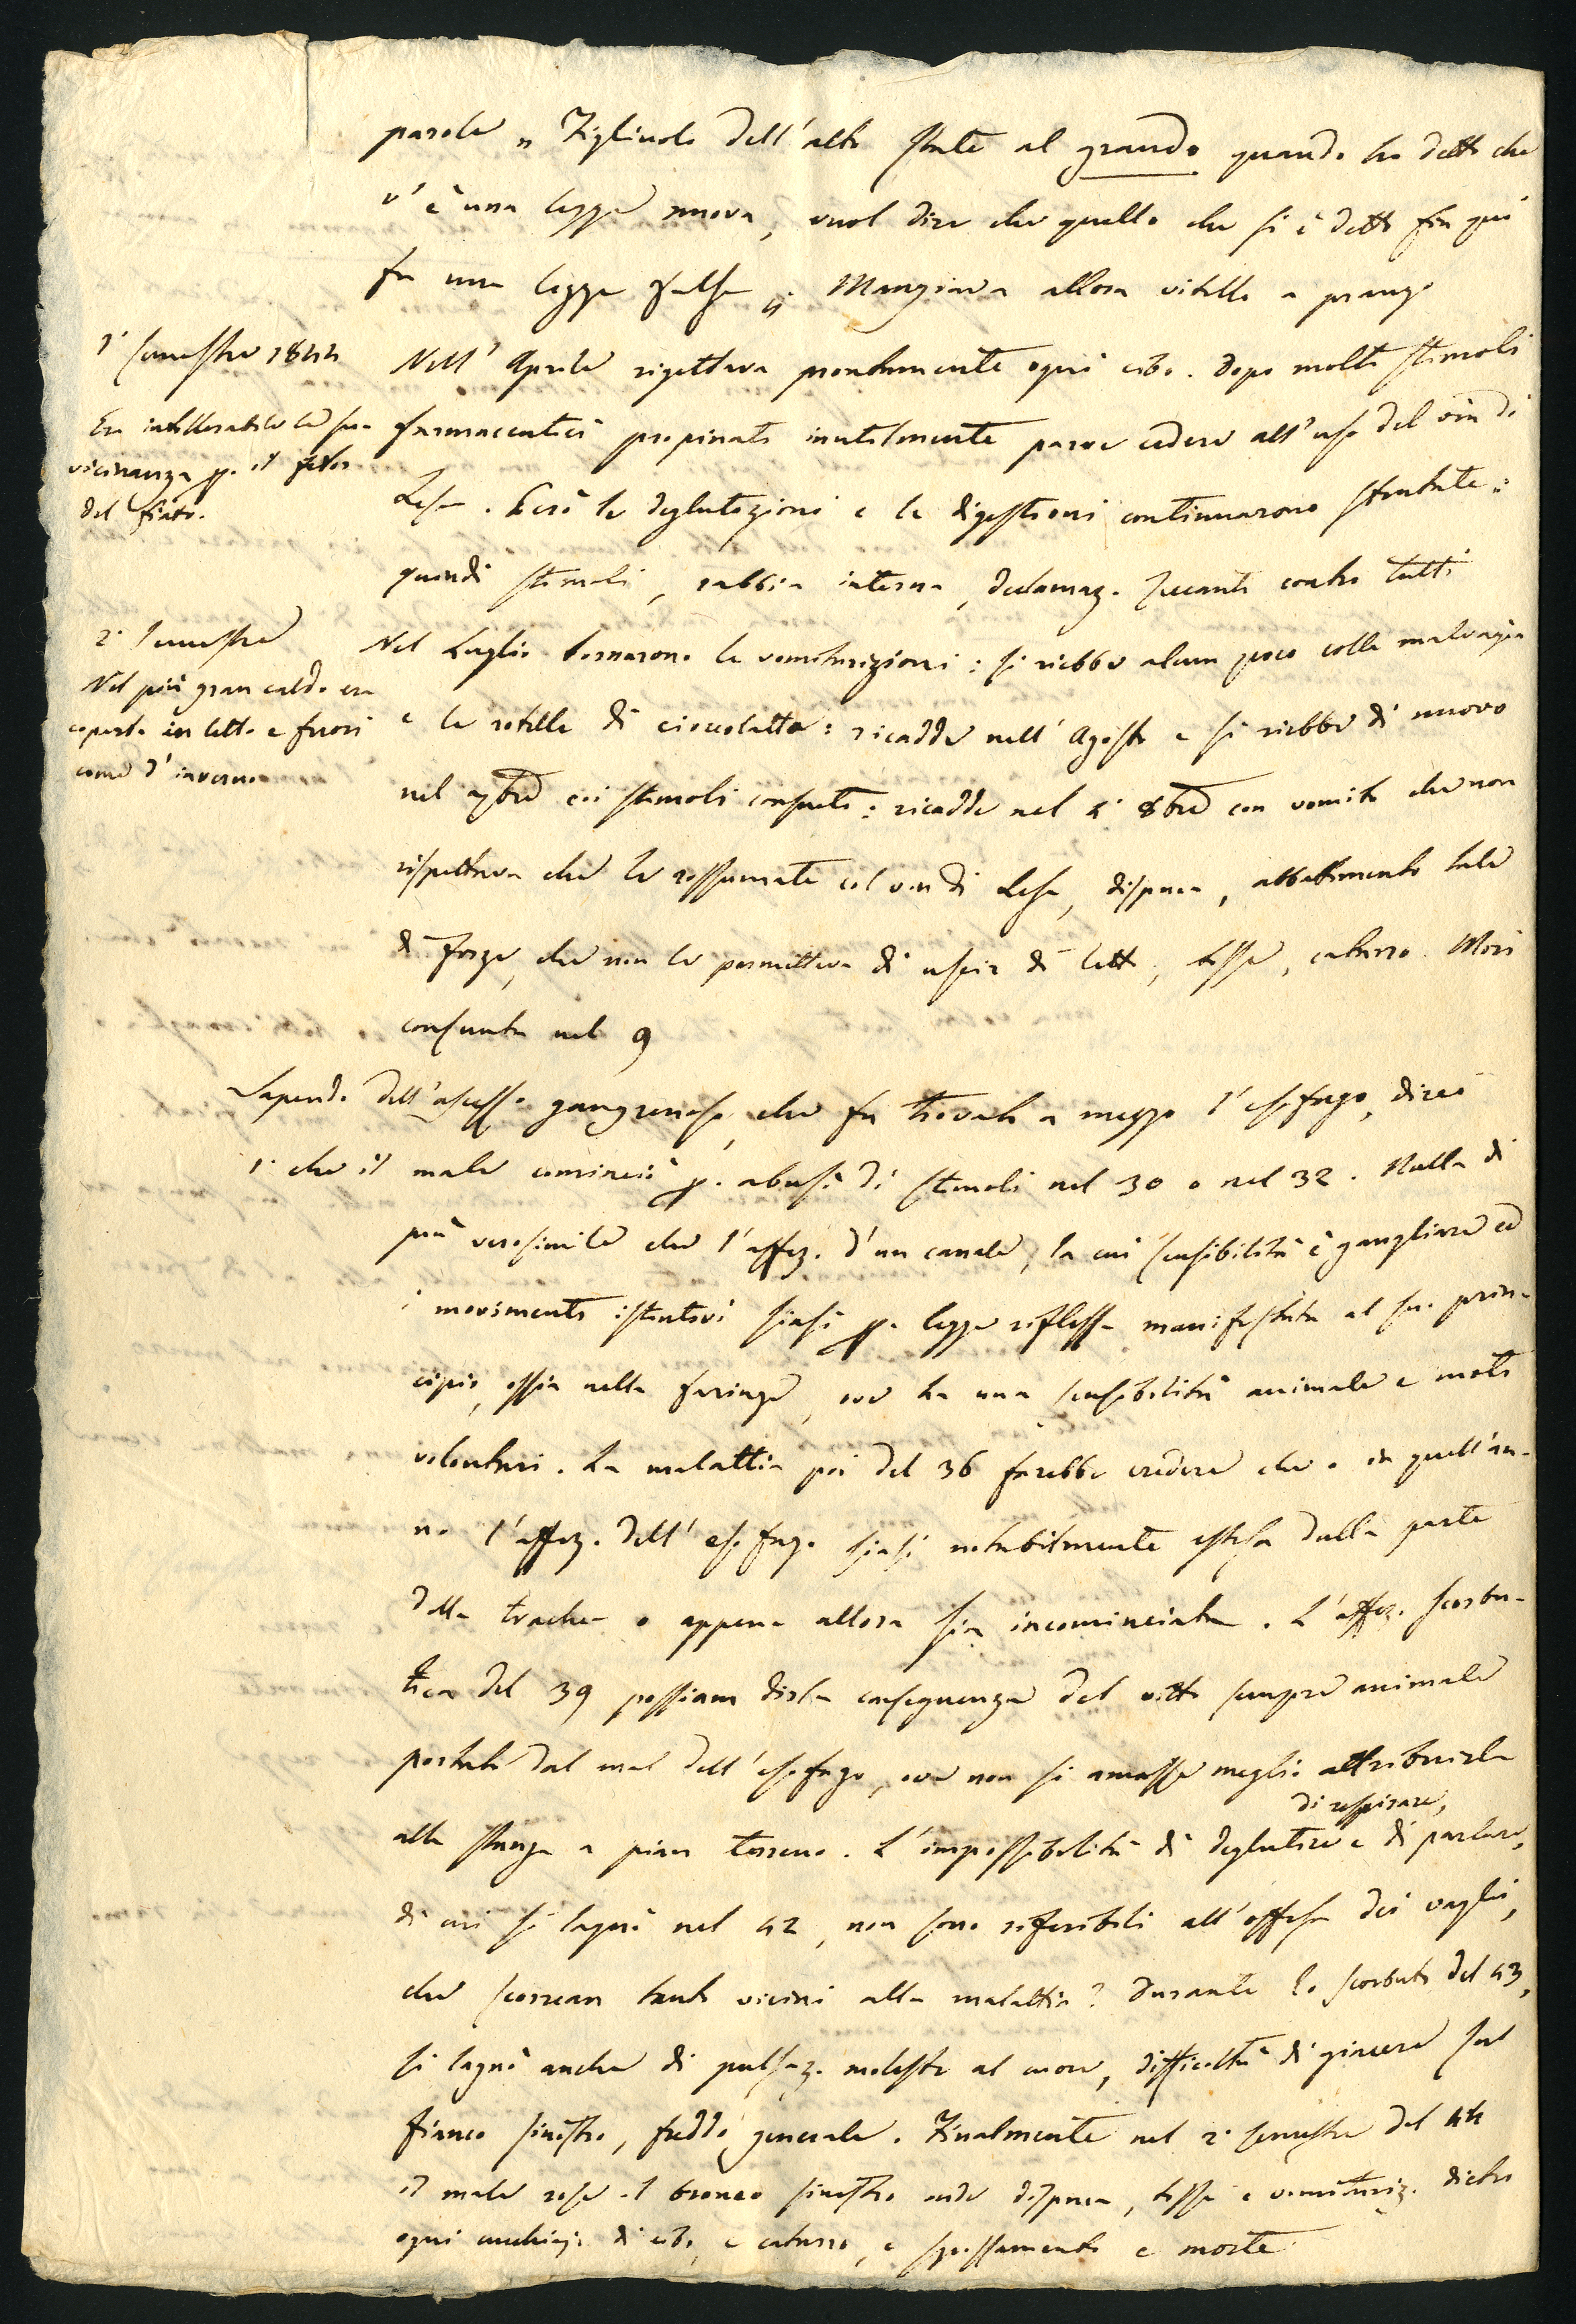 parole „ Figliuolo dell'alto state al grando quando ho detto che
v'è una legge nuova, vuol dire che quello che si è detto fin qui
fu una legge falsa „ Mangiava allora vitello a pranzo
1° semestre 1844
Nell' Aprile rigettava prontamente ogni cibo. Dopo molti stimoli
Era intollerabile la sua
vicinanza p. il fetor
del fiato.
farmaceutici propinati inutilmente parve cedere all'uso del vin di
Lesa. Però le deglutizioni e le digestioni continuarono stentate:
quindi stimoli, rabbia interna, declamaz. seccanti contro tutti
2° semestre
Nel più gran caldo era
coperta in letto e fuori
come d'inverno
Nel Luglio tornarono le vomiturizioni: si riebbe alcun poco colla malvagia
e le rotelle di cioccolatta: ricadde nell' Agosto e si riebbe di nuovo
nel 7bre coi stimoli consueti: ricadde nel 8bre con vomito che non
rispettava che le rossumate col vin di Lesa, dispnea, abbattimento tale
di forze, che non le permetteva di uscir di letto, tosse, catarro. Morì
consunta nel 9
Sapendo dell'ascesso gangrenoso, che fu trovato a mezzo l'esofago, direi
1° che il male cominciò p. abuso di stimoli nel 30 o nel 32. Nulla di
più verosimile che l'affez. d'un canale, la cui sensibilità è gangliare ed
i movimenti istintivi siasi p. legge riflessa manifestata al suo prin-
cipio, ossia nella faringe, ove ha una sensibilità animale e moti
volontari. La malattia poi del 36 farebbe credere che o in quell'an-
no l'affez. dell' esofago siasi notabilmente estesa dalla parte
della trachea o appena allora sia incominciata. L'affez. scorbu-
tica del 39 possiam dirla conseguenza del vitto sempre animale
portato dal mal dell'esofago, ove non si amasse meglio attribuirla
di respirare,
alla stanza a pian terreno. L'impossibilità di deglutire e di parlare,
di cui si lagnò nel 42, non sono riferibili all'offesa dei vaghi,
che scorrean tanto vicini alla malattia? Durante lo scorbuto del 43,
si lagnò anche di pulsaz. moleste al cuore, difficoltà di giacere sul
fianco sinistro, freddo generale. Finalmente nel 2° semestre del 44
il male rose il bronco sinistro onde dispnea, tosse e vomituriz. dietro
ogni cucchiajo di cibo, e catarro, e spossamento e morte